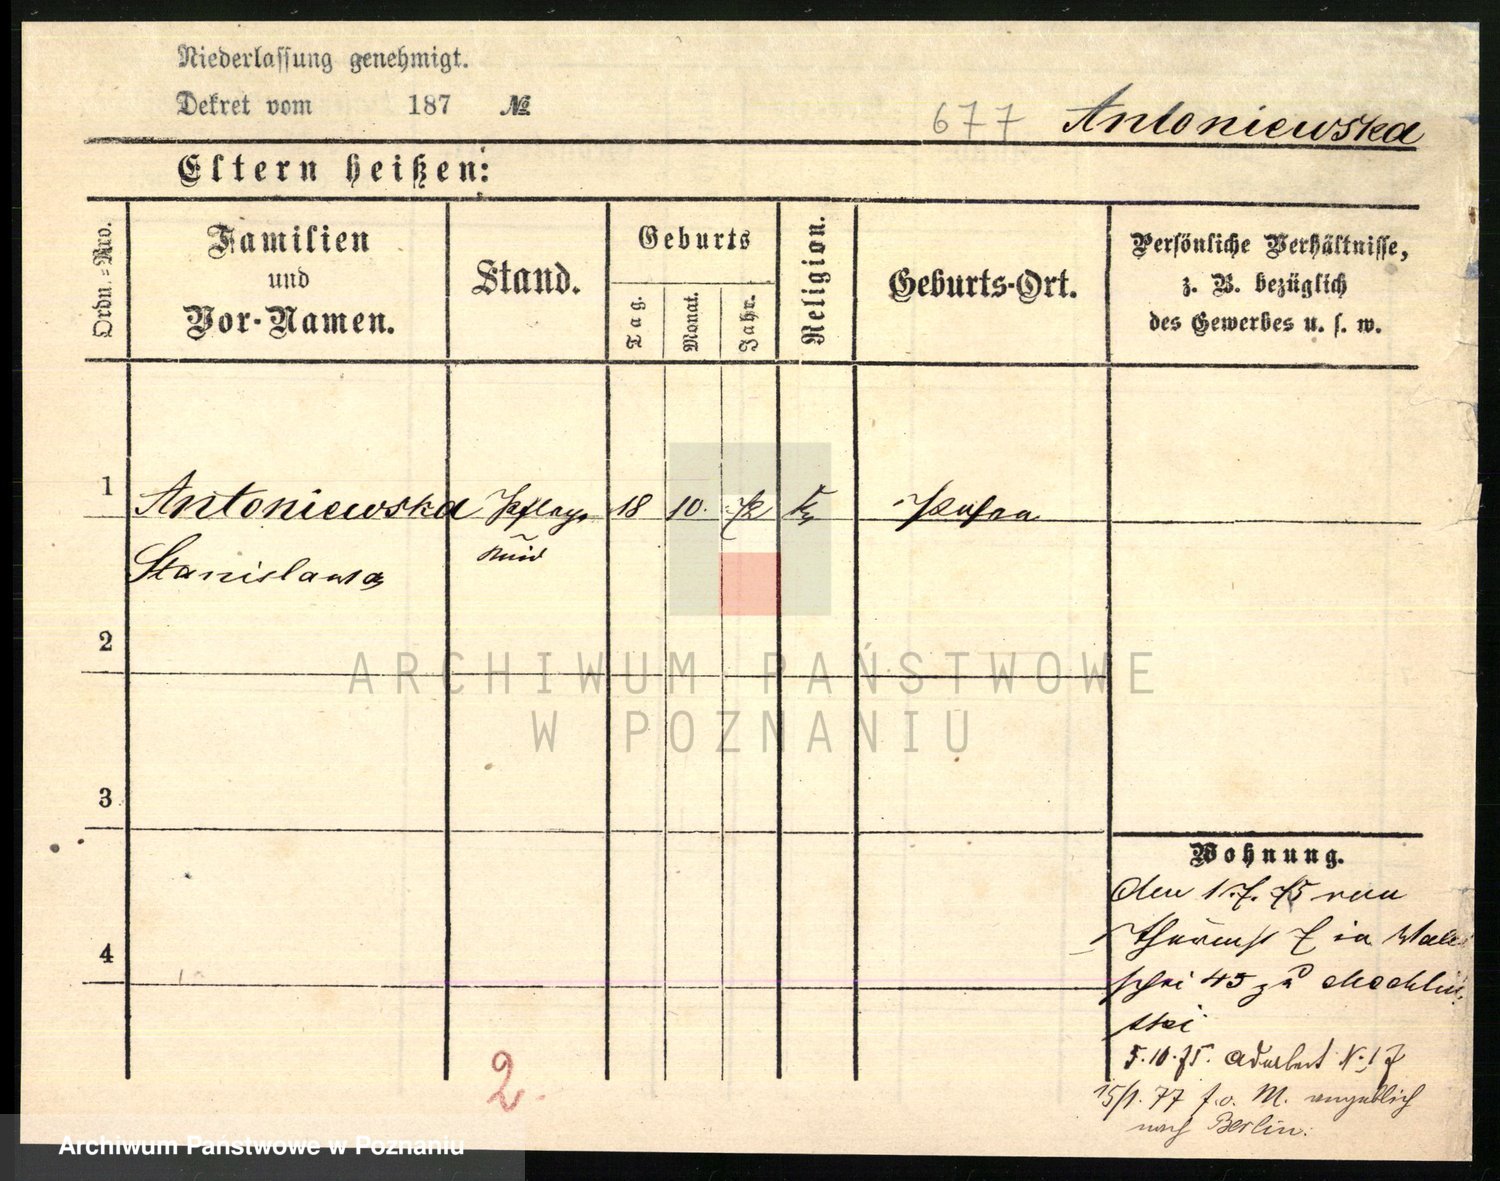 Niederlassung genehmigt.
Dekret vom 187 №
677 Antoniewska
Eltern heißen:
Ordn.-Nro.
Familien
und
Vor-Namen.
Stand.
Geburts
Tag.
Monat.
Jahr.
Religion.
Geburts-Ort.
Persönliche Verhältnisse,
z. B. bezüglich
des Gewerbes u. s. w.
1 Antoniewska Pflege 18 10. 72 k Posen
Stanislawa kind
2
ARCHIWUM PAŃSTWOWE
W POZNANIU
3
Wohnung.
den 1.7.75 von
7 in Wali
schei 45 zu
ski
4
5.10.75. N. 17
15/1. 77 f. v. M. angeblich
nach Berlin.
2.
Archiwum Państwowe w Poznaniu